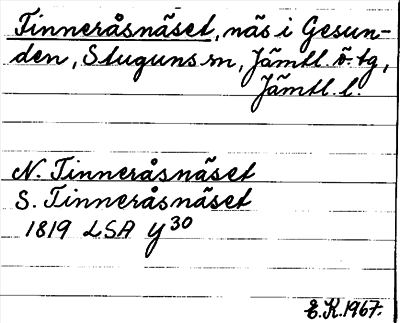 Tinneråsnäset, näs i Gesun-
den, Stuguns sn, Jämtl. ö. tg,
Jämtl. l.
N. Tinneråsnäset
S. Tinneråsnäset
1819 LSA y30
E.K. 1967.